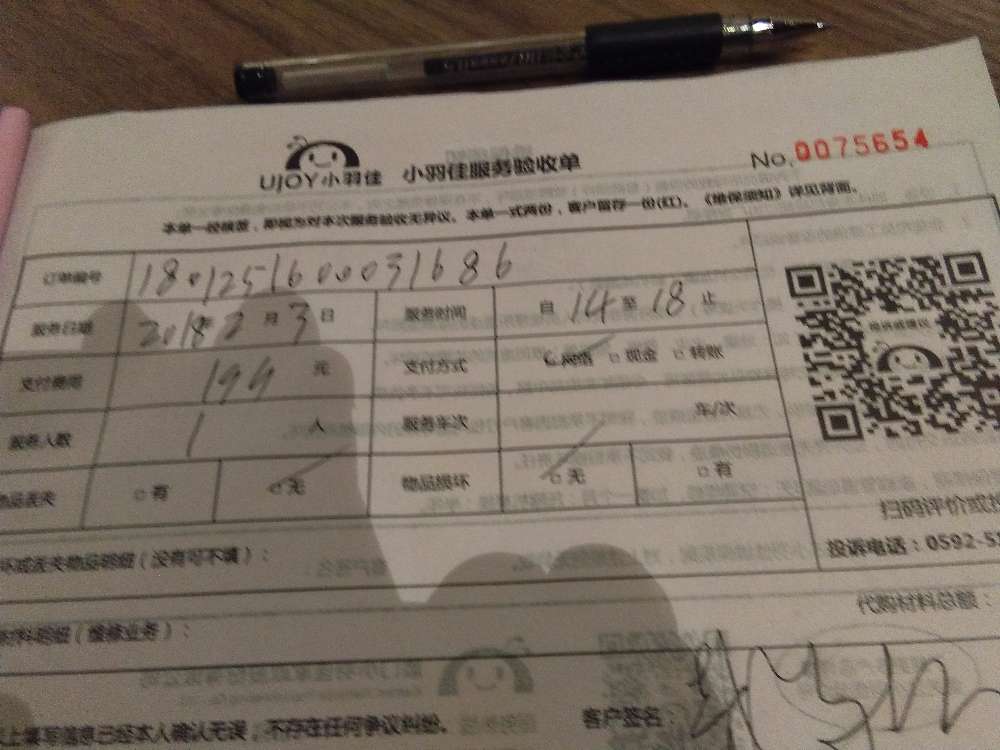 UJOY小羽佳 小羽佳服务验收单 No.0075654
本单一经核签,即视为对本次服务验收无异议。本单一式两份,客户留存一份(红)。《维保须知》详见背面。
订单编号 180125160031686
服务日期 2018年2月3日 服务时间 自14至18止
支付费用 199元 支付方式 网络 现金 转账
服务人数 1人 服务车次 车/次
物品丢失 有 无 物品损坏 无 有
扫码评价或投
投诉电话:0592-5
坏或丢失物品明细(没有可不填):
代购材料总额:
材料明细(维修业务):
以上填写信息已经本人确认无误,不存在任何争议纠纷。 客户签名: